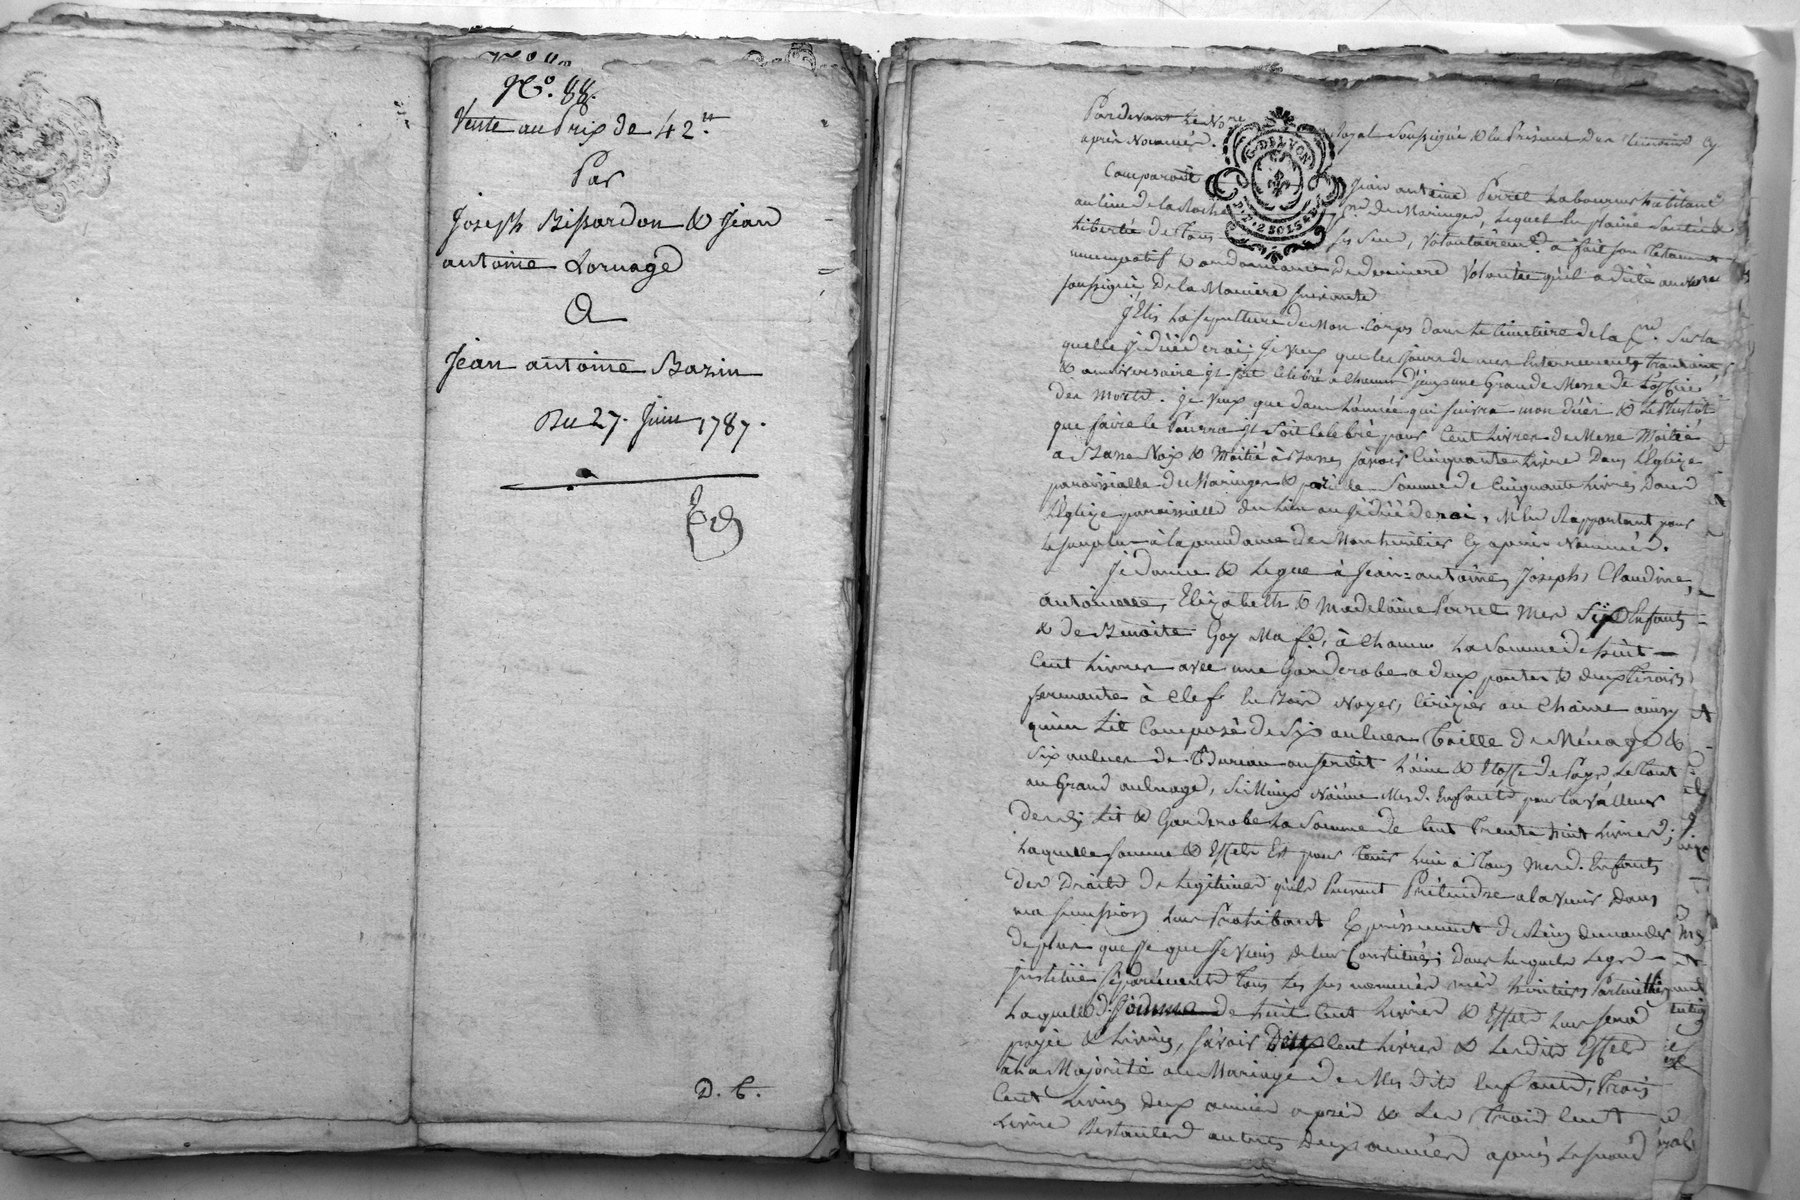 N.º 88.
Vente au Prix de 42.tt
Par
Joseph Bissardon & Jean
antoine Lornage
A
Jean antoine Bazin
Du 27. Juin 1787.
D. C.
G. DE LYON
Pardevant Le No.re Royal Soussigné & En Présence des témoins Cy
après Nommés.
Comparoit Jean antoine Perret Laboureur habitant
au lieu de la Roche P.sse de Maringes, Lequel En pleine Santé &
Liberté de tous ses Sens, Volontairement a fait son testament
nuncupatif & ordonnance de derniere Volontée qu'il a dicté au No.re
soussigné De la Maniere suivante
J'Elis La Sepulture de Mon Corps dans Le Cimetiere de la P.sse Sur la
quelle je décéderai; je veux que les jours de mes Enterrement, trantaine,
& anniversaire il soit Célébré a chacun d'jceux une Grande Messe de L'office
des Morts. je veux que dans L'année qui suivra mon décès & Le Plustôt
que faire Se Pourra il Soit Celebré pour Cent Livres de Messe Moitié
a Basse Voix & Moitié à Basse, sçavoir Cinquante Livres Dans L'Eglize
paroissialle de Maringes & pareille Somme de Cinquante Livres Dans
L'Eglize paroissialle du Lieu ou je décéderai, M'En Rapportant pour
Le surplus à la prudence de Mon heritier Cy après Nommé.
Je donne & Legue à Jean-antoine, Joseph, Claudine,
antoinette, Elizabeth & Madelaine Perret Mes Six Enfants
& de Benoite Goy Ma fe., à chacun La Somme de huit
Cent Livres avec une Garderobe a deux portes & deux tiroirs
fermante à Clef En Bois Noyer, Cerizier ou Chaine ainsy
qu'un Lit Composé de Six aulnes Toille de Ménage &
Six aulnes de Bureau ou Serdit Laine & Etoffe de Pays Le tout
au Grand aulnage, Si Mieux N'aime Mesd. Enfants pour la Valleur
desd. Lit & Garderobe La Somme de Cent Trente huit Livres;
Laquelle somme & Effets Est pour tenir Lieu à Tous Mesd. Enfants
des Droits de Legitimes qu'ils Peuvent Prétendre a la voir Dans
ma succession Leur Prohibant Expressement de Rien demander
de plus que Ce que Je Viens de leur Constituer; Dans Lesquels Legs
j'institue séparément Tous Les sus nommés mes heritiers Particulliers
Laquelle d. somme de huit Cent Livres & Effets Leur Sera
payée & Livrés, sçavoir Deux Cent Livres & Lesdits Effets
à La Majorité ou Mariage de Mes dits Enfants, Trois
Cent Livres Deux années après & Les Trois Cent
Livres Restantes autres Deux années après Le second